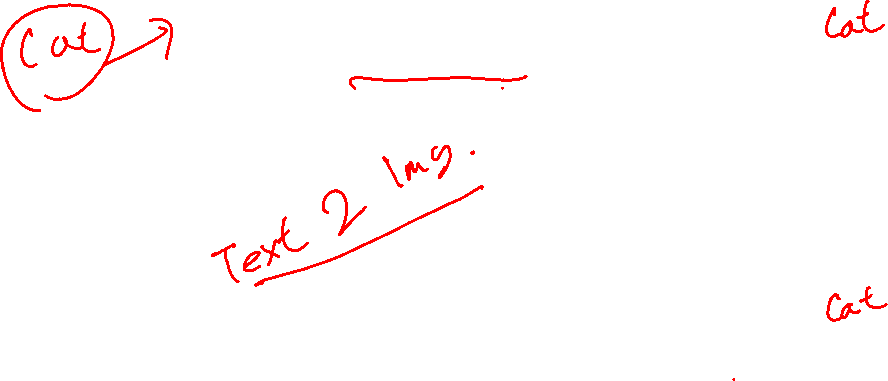 Cat
Cat
Text 2 Img.
Cat